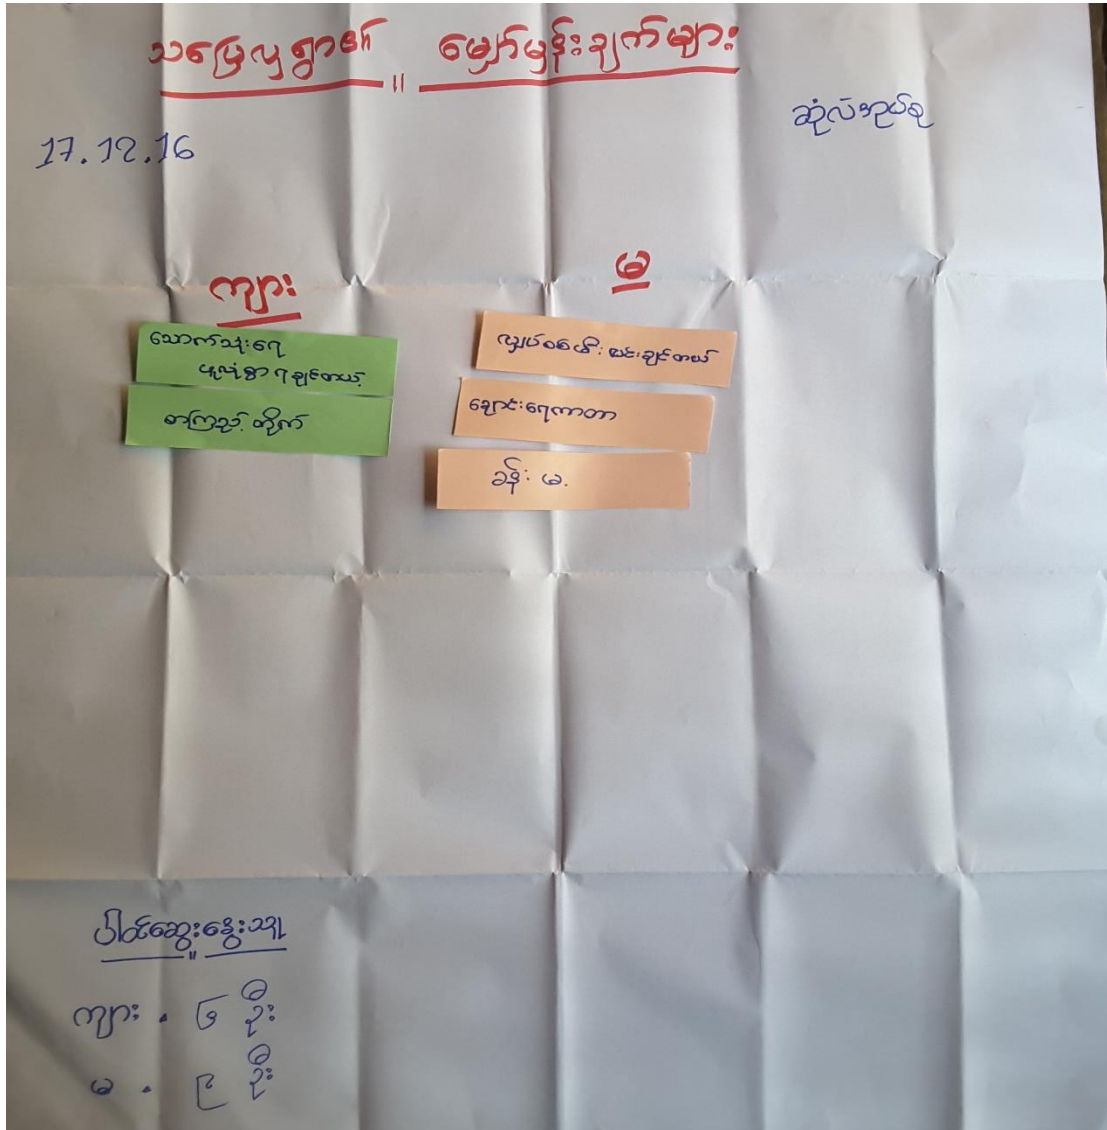 သပြေလှရွာ၏ မျှော်မှန်းချက်များ
17.12.16
ဆုံလဲအုပ်စု
ကျား
မ
သောက်သုံးရေ
ဖူလုံစွာ ရချင်တယ်
စာကြည့်တိုက်
လျှပ်စစ်မီး လင်းချင်တယ်
ချောင်းရေကာတာ
ခန်းမ
ပါဝင်ဆွေးနွေးသူ
ကျား . ၆ ဦး
မ . ၉ ဦး